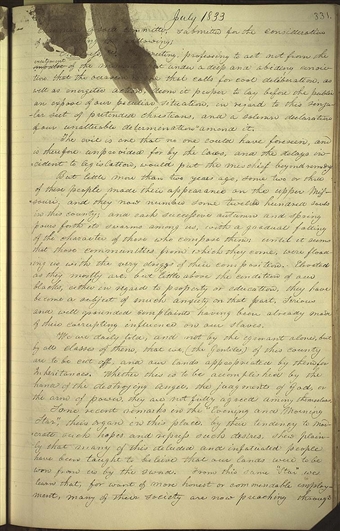 July 1833
331.
committee, submitted for the consideration
of
meeting, professing to act not from the
under a deep and abiding convic-
tion that the occasion is one that calls for cool deliberation, as
well as energetic action, deem it proper to lay before the public
an expose of our peculiar situation, in regard to this singu-
lar sect of pretended christians, and a solemn declaration
of our unalterable determination to amend it.
The evil is one that no one could have foreseen, and
is therefore unprovided for by the laws, and the delays in-
cident to legislation, would put the mischief beyond remedy.
But little more than two years ago, some two or three
of these people made their appearance on the upper Mis-
souri, and they now number some twelve hundred souls
in this county; and each successive autumn and spring
pours forth its swarms among us, with a gradual falling
of the character of those who compose them; until it seems
that those communities from which they come, were flood-
ing us with the very dregs of their composition. Elevated
as they mostly are but little above the condition of our
blacks, either in regard to property or education, they have
become a subject of much anxiety on that part, serious
and well grounded complaints having been already made
of their corrupting influence on our slaves.
We are daily told, and not by the ignorant alone, but
by all classes of them, that we, (the Gentiles,) of this county
are to be cut off, and our lands appropriated by them for
inheritances. Whether this is to be accomplished by the
hand of the destroying angel, the judgments of God, or
the arm of power, they are not fully agreed among themselves.
Some recent remarks in the Evening and Morning
Star, their organ in this place, by their tendency to mode-
rate such hopes and repress such desires, show plain-
ly that many of this deluded and infatuated people
have been taught to believe that our lands were to be
won from us by the sword. From this same "Star" we
learn that, for want of more honest or commendable employ-
ment, many of their society are now preaching through